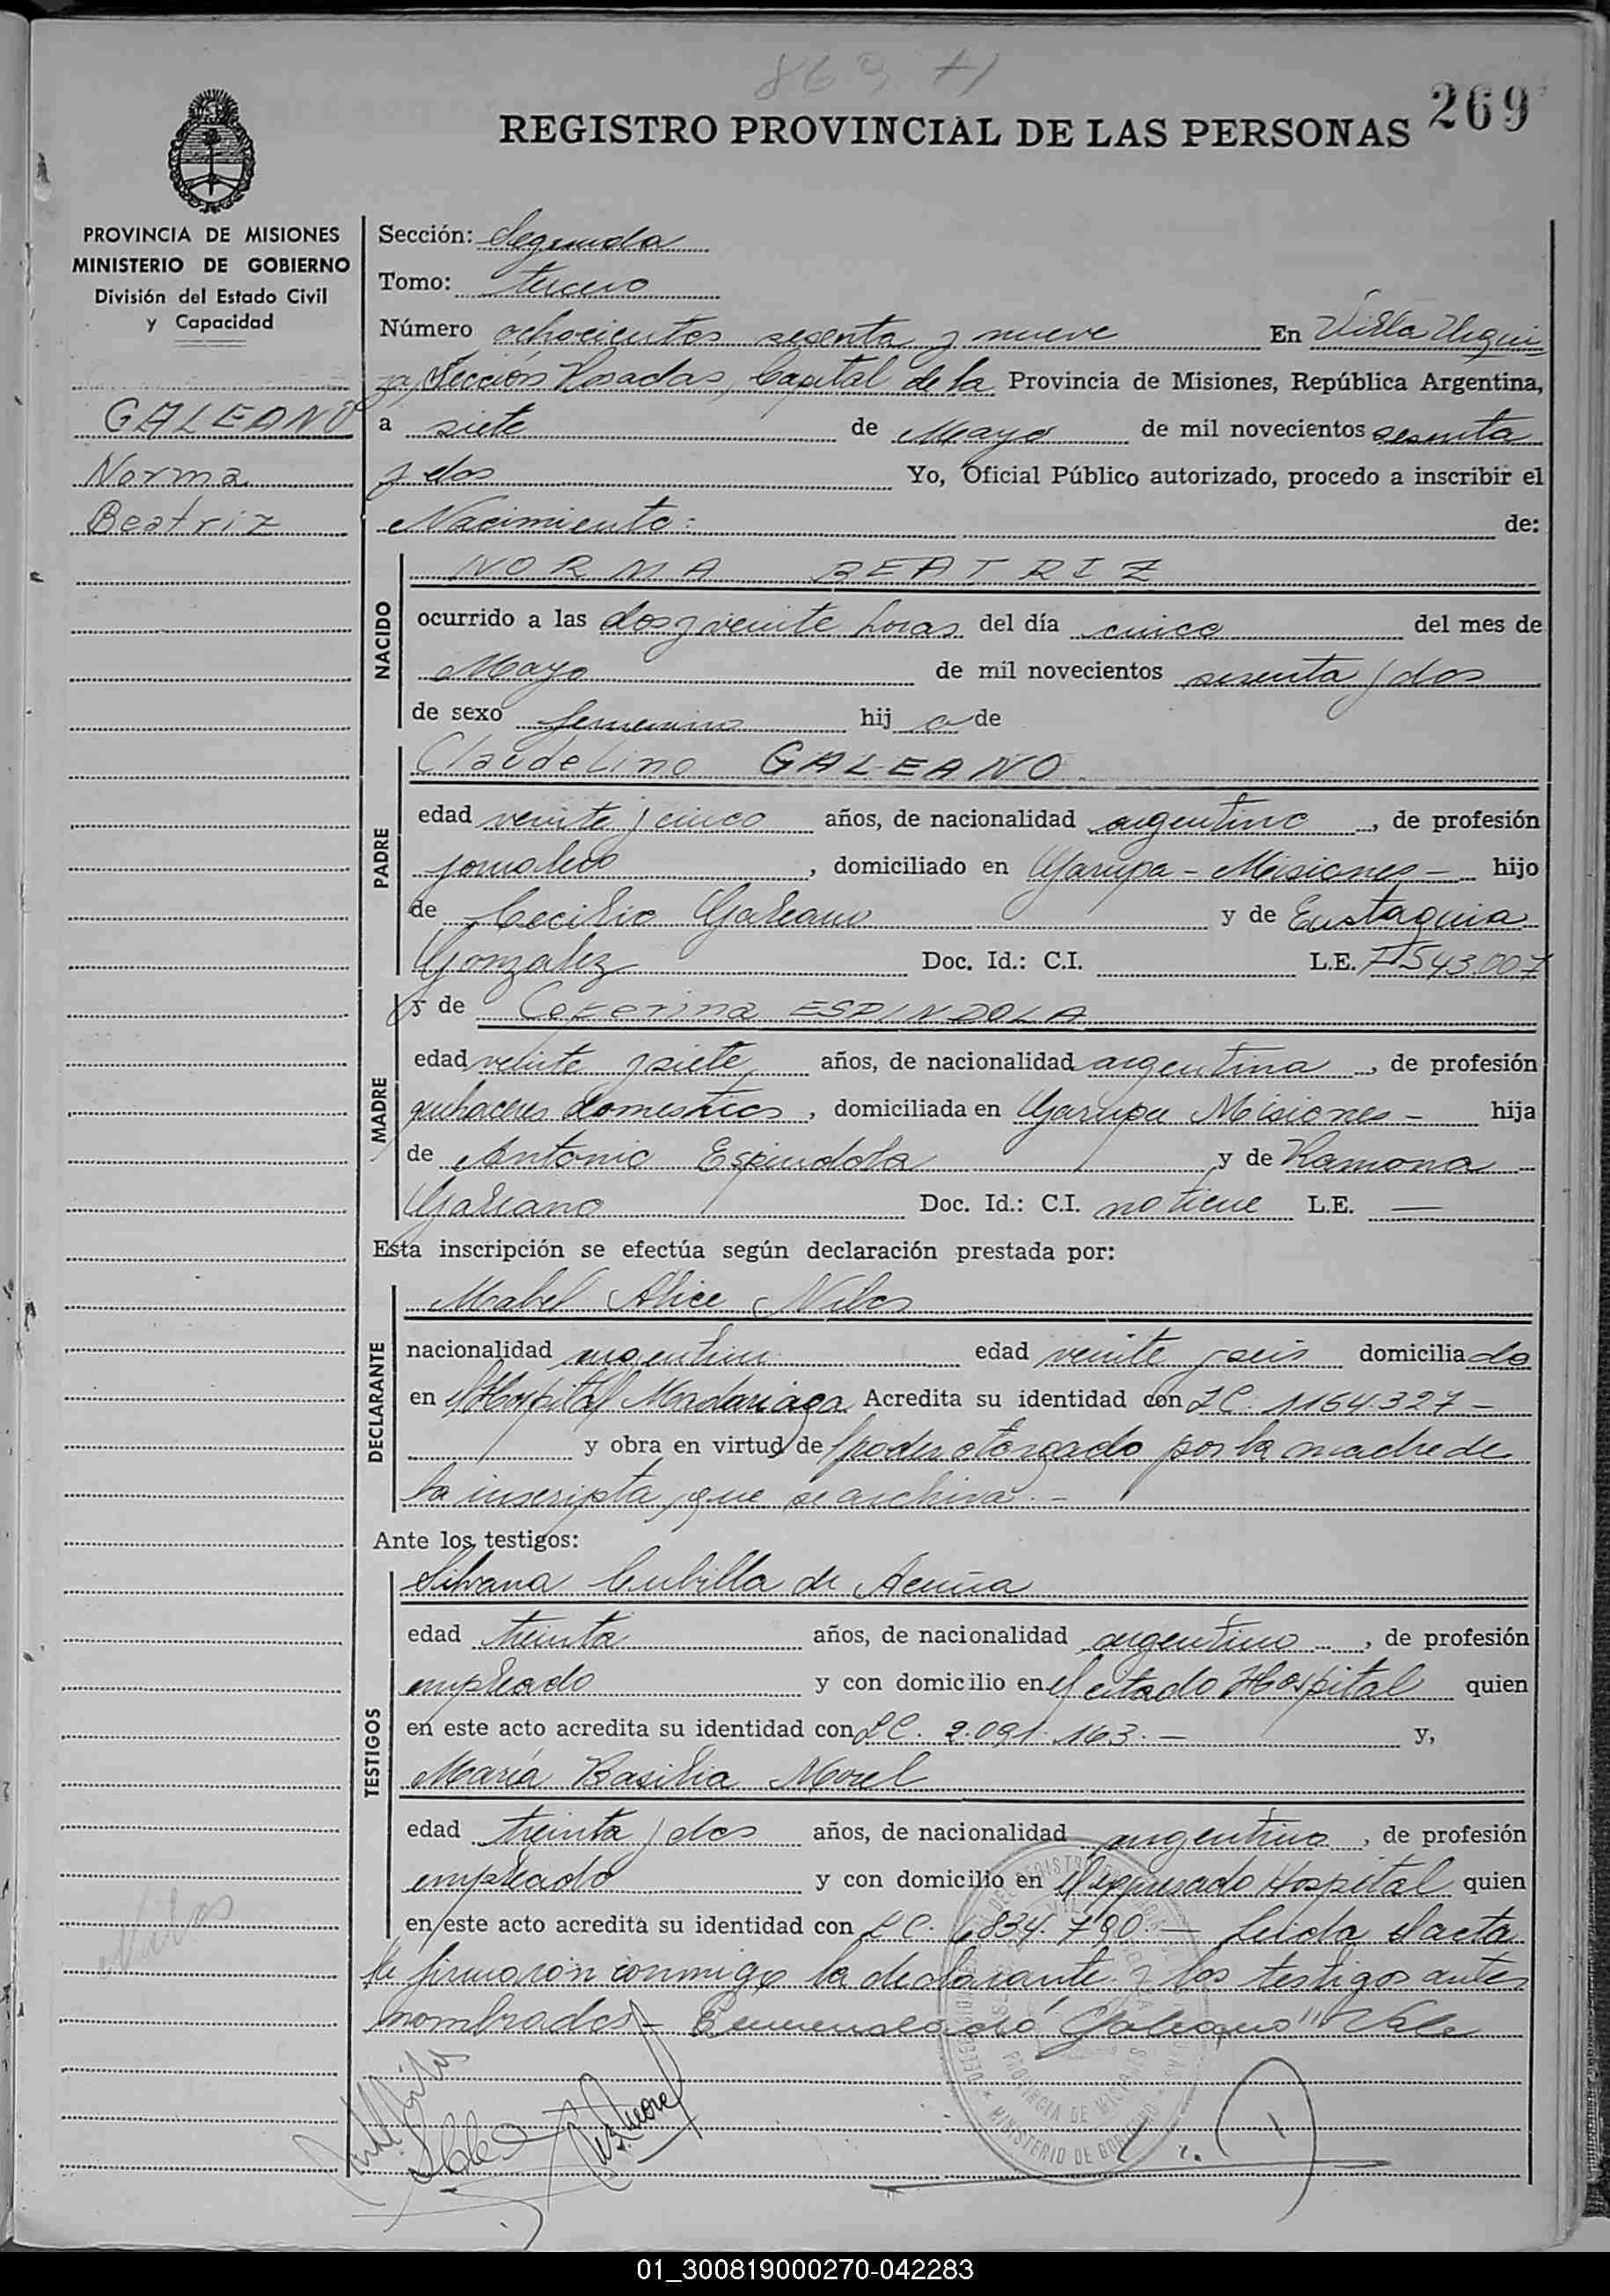 869 H
REGISTRO PROVINCIAL DE LAS PERSONAS
269
PROVINCIA DE MISIONES
MINISTERIO DE GOBIERNO
División del Estado Civil
y Capacidad
GALEANO
Norma
Beatriz
Sección: Segunda
Tomo: tercero
Número ochocientos sesenta y nueve En Villa Urqui-
za, Sección Posadas, Capital de la Provincia de Misiones, República Argentina,
a siete de Mayo de mil novecientos sesenta
y dos Yo, Oficial Público autorizado, procedo a inscribir el
Nacimiento: de:
NACIDO
NORMA BEATRIZ
ocurrido a las dos y veinte horas del día cinco del mes de
Mayo de mil novecientos sesenta y dos
de sexo femenino hij a de
PADRE
Claudelino GALEANO
edad veinte y cinco años, de nacionalidad argentino, de profesión
jornalero, domiciliado en Garupa - Misiones - hijo
de Cecilio Galeano y de Eustaquia
Gonzalez Doc. Id.: C.I. L.E. 7.543.007
MADRE
y de Ceferina ESPINDOLA
edad veinte y siete años, de nacionalidad argentina, de profesión
quehaceres domesticos, domiciliada en Garupa Misiones - hija
de Antonio Espindola y de Ramona
Galeano Doc. Id.: C.I. no tiene L.E. —
Esta inscripción se efectúa según declaración prestada por:
DECLARANTE
Mabel Alice Nilos
nacionalidad argentina edad veinte y seis domicilia da
en el Hospital Madariaga Acredita su identidad con LC. 1164.327 -
y obra en virtud de poder otorgado por la madre de
la inscripta, que se archiva. -
Ante los testigos:
TESTIGOS
Silvana Cubilla de Acuña
edad treinta años, de nacionalidad argentino, de profesión
empleado y con domicilio en el citado Hospital quien
en este acto acredita su identidad con LC. 2.091.163. - y,
María Basilia Morel
edad treinta y dos años, de nacionalidad argentino, de profesión
empleado y con domicilio en el expresado Hospital quien
en este acto acredita su identidad con LC. 6834.790 - Leida el acta
la firmaron conmigo la declarante y los testigos antes
nombrados - Enmendado "Galeano" Vale
Nilos
PROVINCIA DE MISIONES
MINISTERIO DE GOBIERNO
01_300819000270-042283